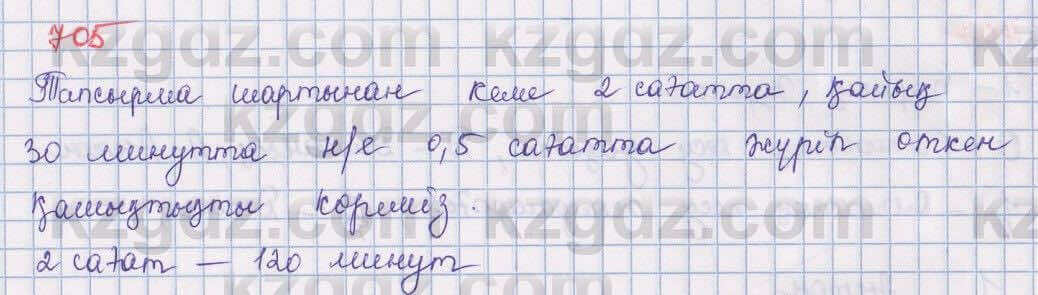 705
Тапсырма шартынан кеме 2 сағатта, қайық
30 минутта н/е 0,5 сағатта жүріп өткен
қашықтықты көреміз.
2 сағат — 120 минут
kzgdz.com
kzgdz.com
kzgdz.com
kzgdz.com